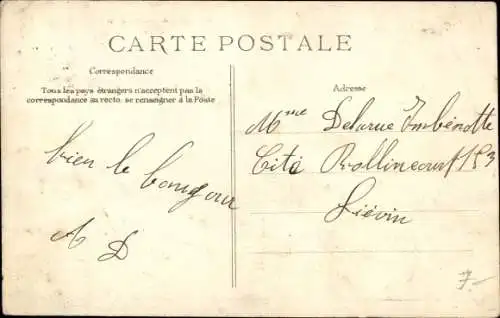 CARTE POSTALE
Correspondance
Tous les pays étrangers n'acceptent pas la
correspondance au recto, se renseigner à la Poste
bien le bonjour
A D
Adresse
Mme Delarue Imbénotte
Cité Rollincourt 153
Liévin
7-